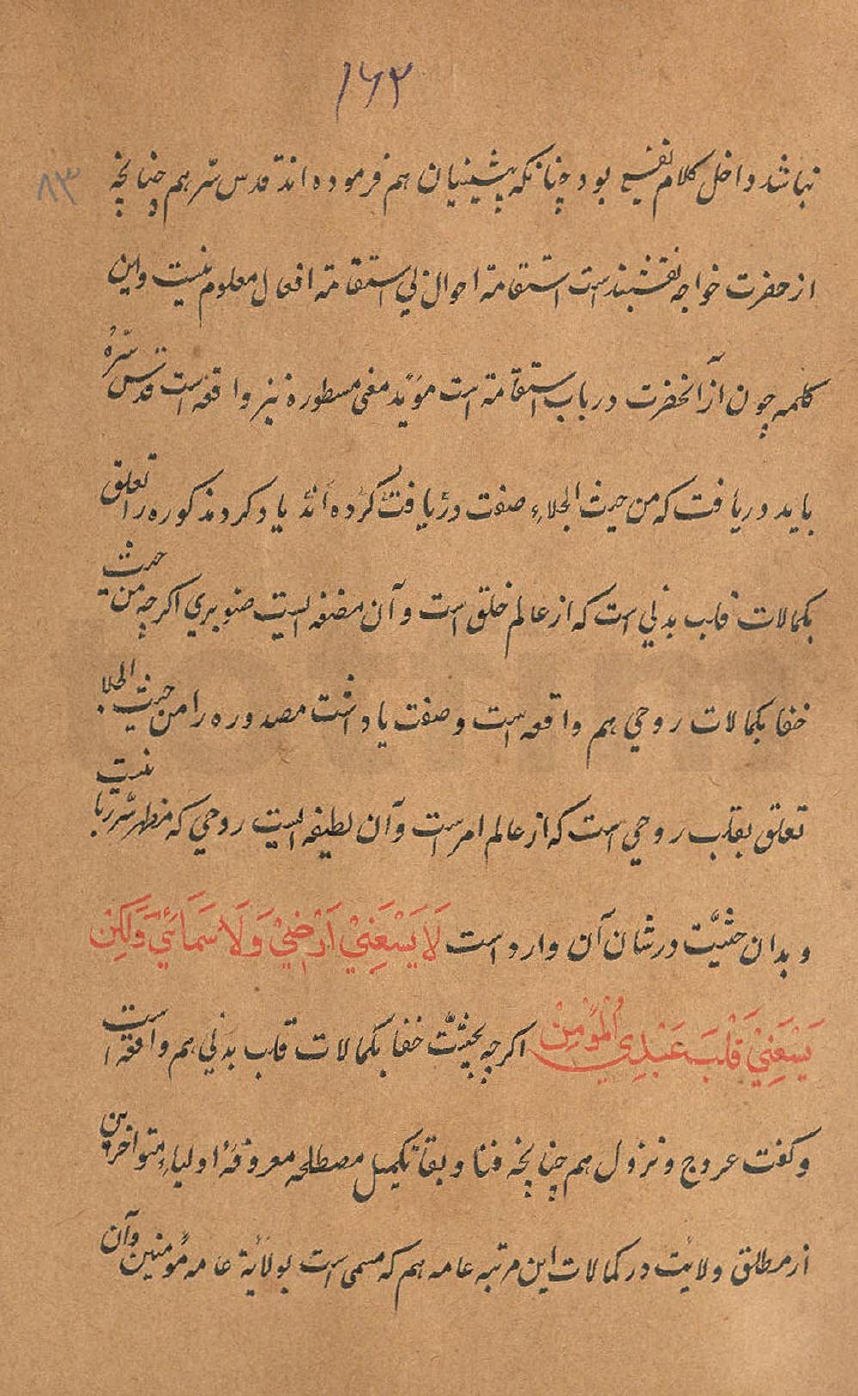 ۱۶۲
۸۳
نباشد داخل کلام نفیس بود چنانکه پیشینیان هم فرموده اند قدس سرهم چنانچه
از حضرت خواجه نقشبند است استقامة احوال بی استقامة افعال معلوم نیست واین
کلمه چون از آنحضرت در باب استقامة است مؤید معنی مسطوره نیز واقعه است قدس سره
باید دریافت که من حیث الجلاء صفت دریافت کرده اند یادکرد مذکوره را تعلق
بکمالات قلب بدنی است که از عالم خلق است وآن مضغه ایست صنوبری اگرچه من حیث
خفا بکمالات روحی هم واقعه است وصفت یادداشت مصدوره را من حیث الجلا
تعلق بقلب روحی است که از عالم امر است وآن لطیفه ایست روحی که مظهر سر ربانیت
وبدان حثیّت درشان آن وارد است لَا یَسَعُنِیْ اَرْضِیْ وَلَا سَمَائِیْ وَلٰکِنْ
یَسَعُنِیْ قَلْبَ عَبْدِیِ الْمُؤْمِنْ اگرچه بحثیّت خفا بکمالات قلب بدنی هم واقعه است
وگفت عروج ونزول هم چنانچه فنا وبقا تکمیل مصطلحه معروفهٔ اولیاء متواخرین
از مطلق ولایت در کمالات این مرتبه عامه هم که مسمی است بولایة عامه مؤمنین وآن